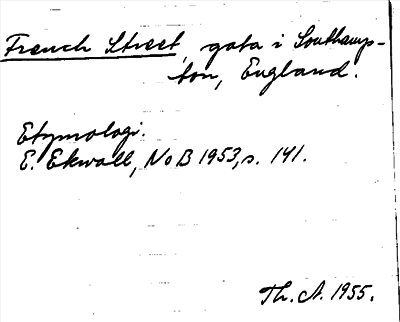 French Street, gata i Southamp-
ton, England.
Etymologi.
E. Ekwall, NoB 1953, s. 141.
Th. A. 1955.